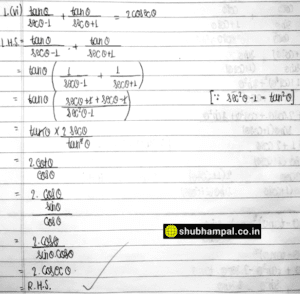 1.(vi) tanθ/(secθ-1) + tanθ/(secθ+1) = 2cosecθ
L.H.S = tanθ/(secθ-1) + tanθ/(secθ+1)
= tanθ (1/(secθ-1) + 1/(secθ+1))
= tanθ ((secθ+1+secθ-1)/(sec²θ-1)) [∵ sec²θ-1 = tan²θ]
= tanθ × 2 secθ/tan²θ
= 2cotθ/cosθ
= 2. cosθ/sinθ/cosθ
= 2.cosθ/sinθ.cosθ
= 2.cosecθ
= R.H.S.
shubhampal.co.in